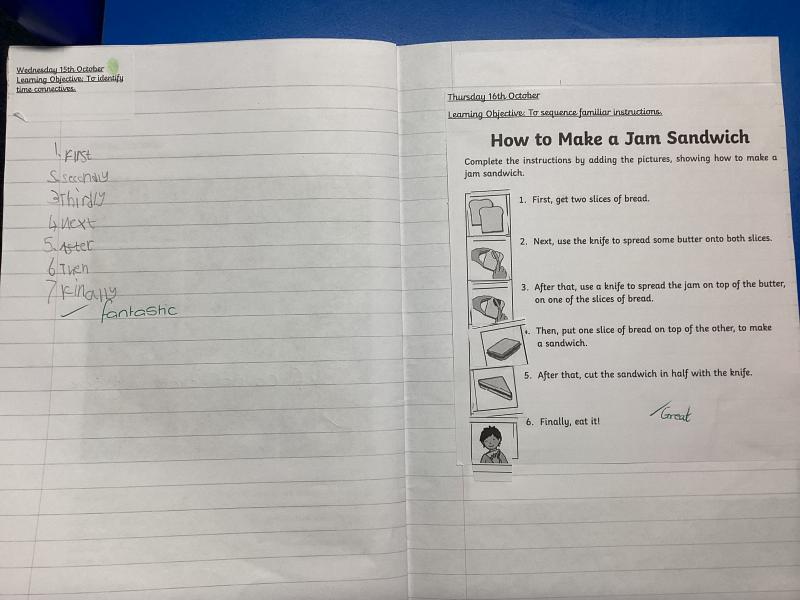 Wednesday 15th October
Learning Objective: To identify
time connectives.
1. First
2. secondly
3 Thirdly
4. next
5. After
6 Then
7 Finally
✓ fantastic
Thursday 16th October
Learning Objective: To sequence familiar instructions.
How to Make a Jam Sandwich
Complete the instructions by adding the pictures, showing how to make a
jam sandwich.
1. First, get two slices of bread.
2. Next, use the knife to spread some butter onto both slices.
3. After that, use a knife to spread the jam on top of the butter,
on one of the slices of bread.
4. Then, put one slice of bread on top of the other, to make
a sandwich.
5. After that, cut the sandwich in half with the knife.
6. Finally, eat it!
✓ Great